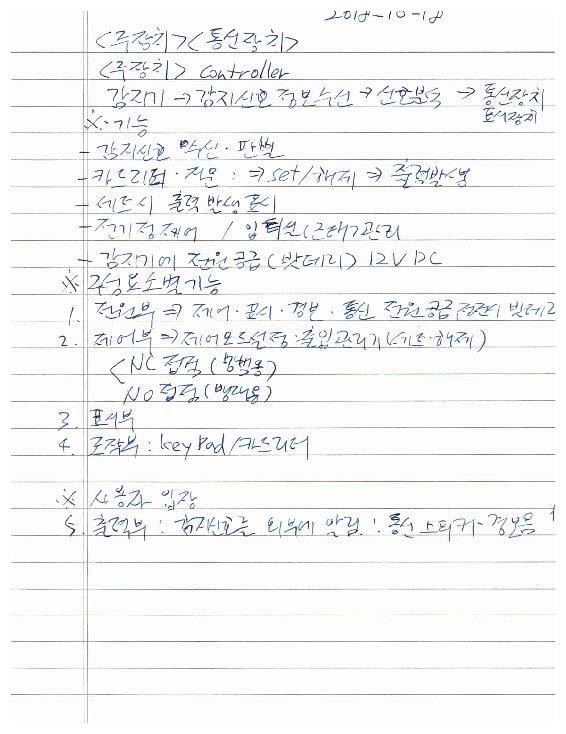 2018-10-18
<주장치><통신장치>
<주장치> controller
감지기 → 감지신호 정보수신 → 신호분석 → 통신장치
표시장치
※·기능
- 감지신호 수신·판별
- 카드리더·전문 : ⇒ set/해제 ⇒ 출력발생
- 세트시 출력발생표시
- 전기정제어 / 입퇴실(근태)관리
- 감지기에 전원공급(밧데리) 12V DC
※ 구성요소별기능
1. 전원부 ⇒ 제어·표시·경보·통신 전원공급 정전시 밧데리
2. 제어부 ⇒ 제어모드설정·출입관리기(세트·해제)
< NC 접점 (방범용)
NO 접점 (방재용)
3. 표시부
4. 조작부 : key Pad/카드리더
※ 사용자 입장
5. 출력부 : 감지신호를 외부에 알림 : 통신 스피커·경보음